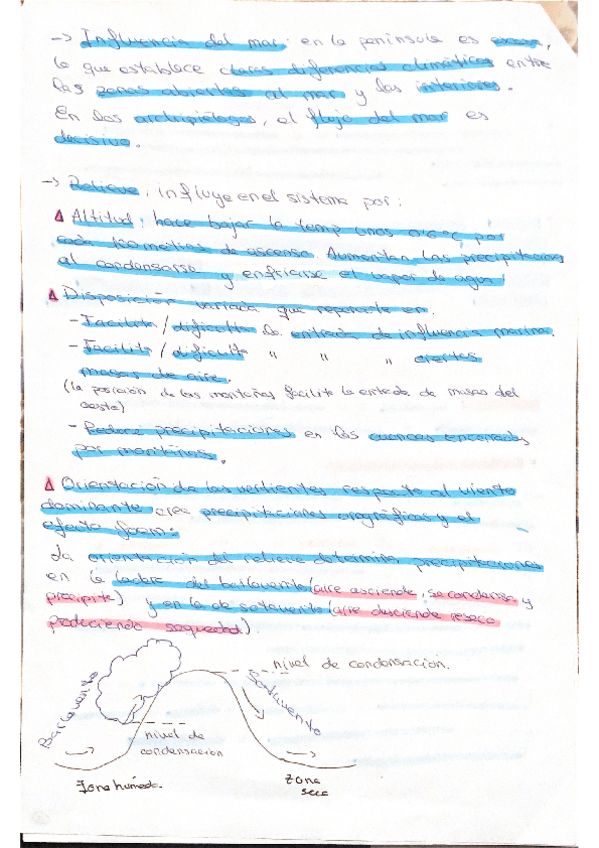 -> Influencia del mar: en la península es escasa,
lo que establece claras diferencias climáticas entre
las zonas abiertas al mar y las interiores.
En los archipiélagos, el flujo del mar es
decisivo.
-> Relieve: influye en el sistema por:
Δ Altitud: hace bajar la temp unos 0'6ºC por
cada 100 metros de ascenso. Aumentan las precipitaciones
al condensarse y enfriarse el vapor de agua.
Δ Disposición variada que repercute en:
- Facilita / dificulta la entrada de influencia marina.
- Facilita / dificulta " " " ciertas
masas de aire.
(la posición de las montañas facilita la entrada de masas del
oeste)
- Reduce precipitaciones en las cuencas encerradas
por montañas.
Δ Orientación de las vertientes respecto al viento
dominante crea precipitaciones orográficas y el
efecto foem:
La orientación del relieve determina precipitaciones
en la ladera del barlovento (aire asciende, se condensa y
precipita) y en la de sotavento (aire desciende reseco
produciendo sequedad).
nivel de condensación.
Barlovento
Sotavento
nivel de
condensación
Zona húmeda.
zona
seca